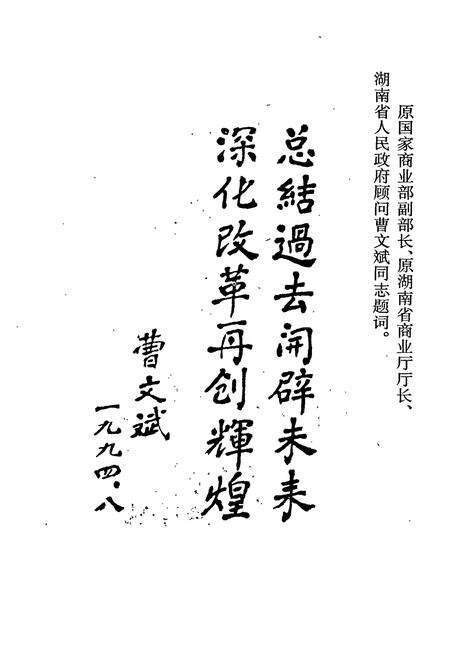 原国家商业部副部长、原湖南省商业厅厅长、
湖南省人民政府顾问曹文斌同志题词。
总结過去开辟未来
深化改革再创輝煌
曹文斌
一九九四.八